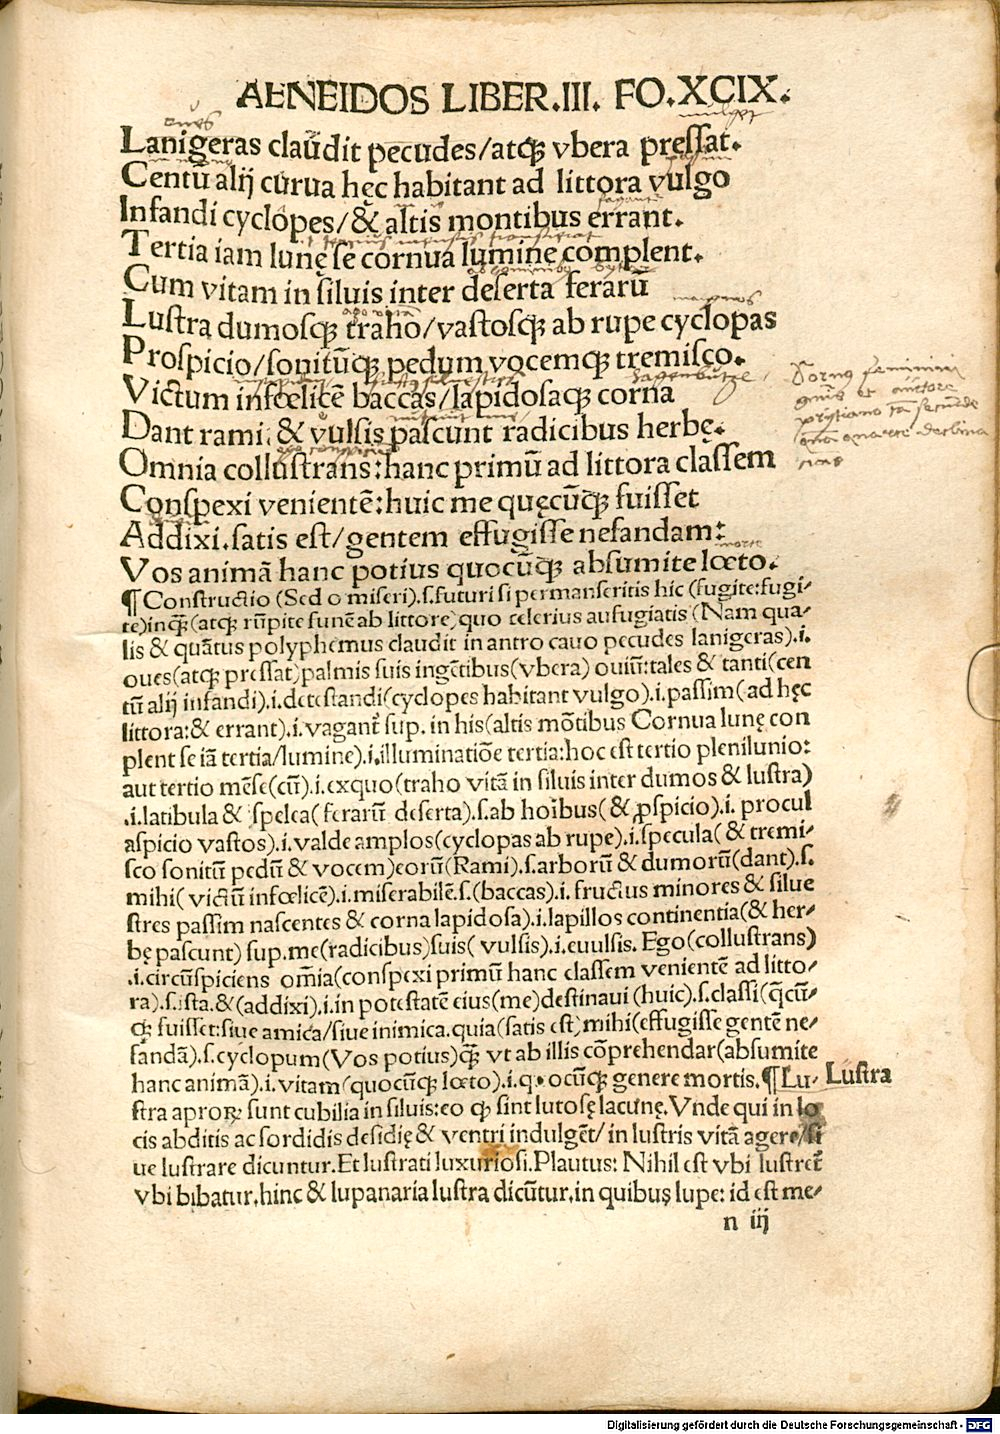 AENEIDOS LIBER.III. FO.XCIX.
oues
Lanigeras claudit pecudes/atq̃ vbera pressat.
Centū alij curua hęc habitant ad littora vulgo
Infandi cyclopes/& altis montibus errant.
Tertia iam lunę se cornua lumine complent.
Cum vitam in siluis inter deserta ferarū
Lustra domosq̃ traho/vastosq̃ ab rupe cyclopas
Prospicio/sonitūq̃ pedum vocemq̃ tremisco.
Victum infœlicē baccas/lapidosaq̃ corna
Dant rami, & vulsis pascunt radicibus herbę.
Omnia collustrans: hanc primū ad littora classem
Conspexi venientē: huic me quęcūq̃ fuisset
Addixi. satis est/gentem effugisse nefandam:
Vos animā hanc potius quocūq̃ absumite lœto.
¶ Constructio (Sed o miseri).s.futuri si permanseritis hic (fugite:fugi/
te)inq̃(atq̃ rūpite funē ab littore) quo celerius aufugiatis (Nam qua/
lis & quātus polyphemus claudit in antro cauo pecudes lanigeras).i.
oues(atq̃ pressat)palmis suis ingētibus(vbera) ouiū:tales & tanti(cen
tū alij infandi).i.detestandi(cyclopes habitant vulgo).i.passim(ad hęc
littora:& errant).i.vagant̃ sup. in his(altis mōtibus Cornua lunę con
plent se iā tertia/lumine).i.illuminatiōe tertia:hoc est tertio plenilunio:
aut tertio mēse(cū).i.exquo(traho vitā in siluis inter dumos & lustra)
.i.latibula & spelea(ferarū deserta).s.ab hoībus(& ꝓspicio).i. procul
aspicio vastos).i.valde amplos(cyclopas ab rupe).i.specula(& tremi/
sco sonitū pedū & vocem)eorū(Rami).s.arborū & dumorū(dant).s.
mihi(victū infœlicē).i.miserabilē.s.(baccas).i.fructus minores & silue
stres passim nascentes & corna lapidosa).i.lapillos continentia(& her/
bę pascunt) sup.me(radicibus)suis(vulsis).i.euulsis. Ego(collustrans)
.i.circūspiciens om̃ia(conspexi primū hanc classem venientē ad litto/
ra).s.ista.&(addixi).i.in potestatē eius(me)destinaui(huic).s.classi(q̄cū/
q̃ fuisset:siue amica/siue inimica.quia(satis est) mihi(effugisse gentē ne/
fandā).s.cyclopum(Vos potius)q̃ vt ab illis cōprehendar(absumite
hanc animā).i.vitam(quocūq̃ lœto).i.q•ocūq̃ genere mortis.¶Lu-
Lustra
stra aproꝝ sunt cubilia in siluis:eo q̃ sint lutosę lacunę.Vnde qui in lo
cis abditis ac sordidis desidię & ventri indulgēt/in lustris vitā agere/si
ue lustrare dicuntur.Et lustrati luxuriosi.Plautus: Nihil est vbi lustret̃
vbi bibatur,hinc & lupanaria lustra dicūtur,in quibus lupę: id est me/
n iij
Digitalisierung gefördert durch die Deutsche Forschungsgemeinschaft - DFG